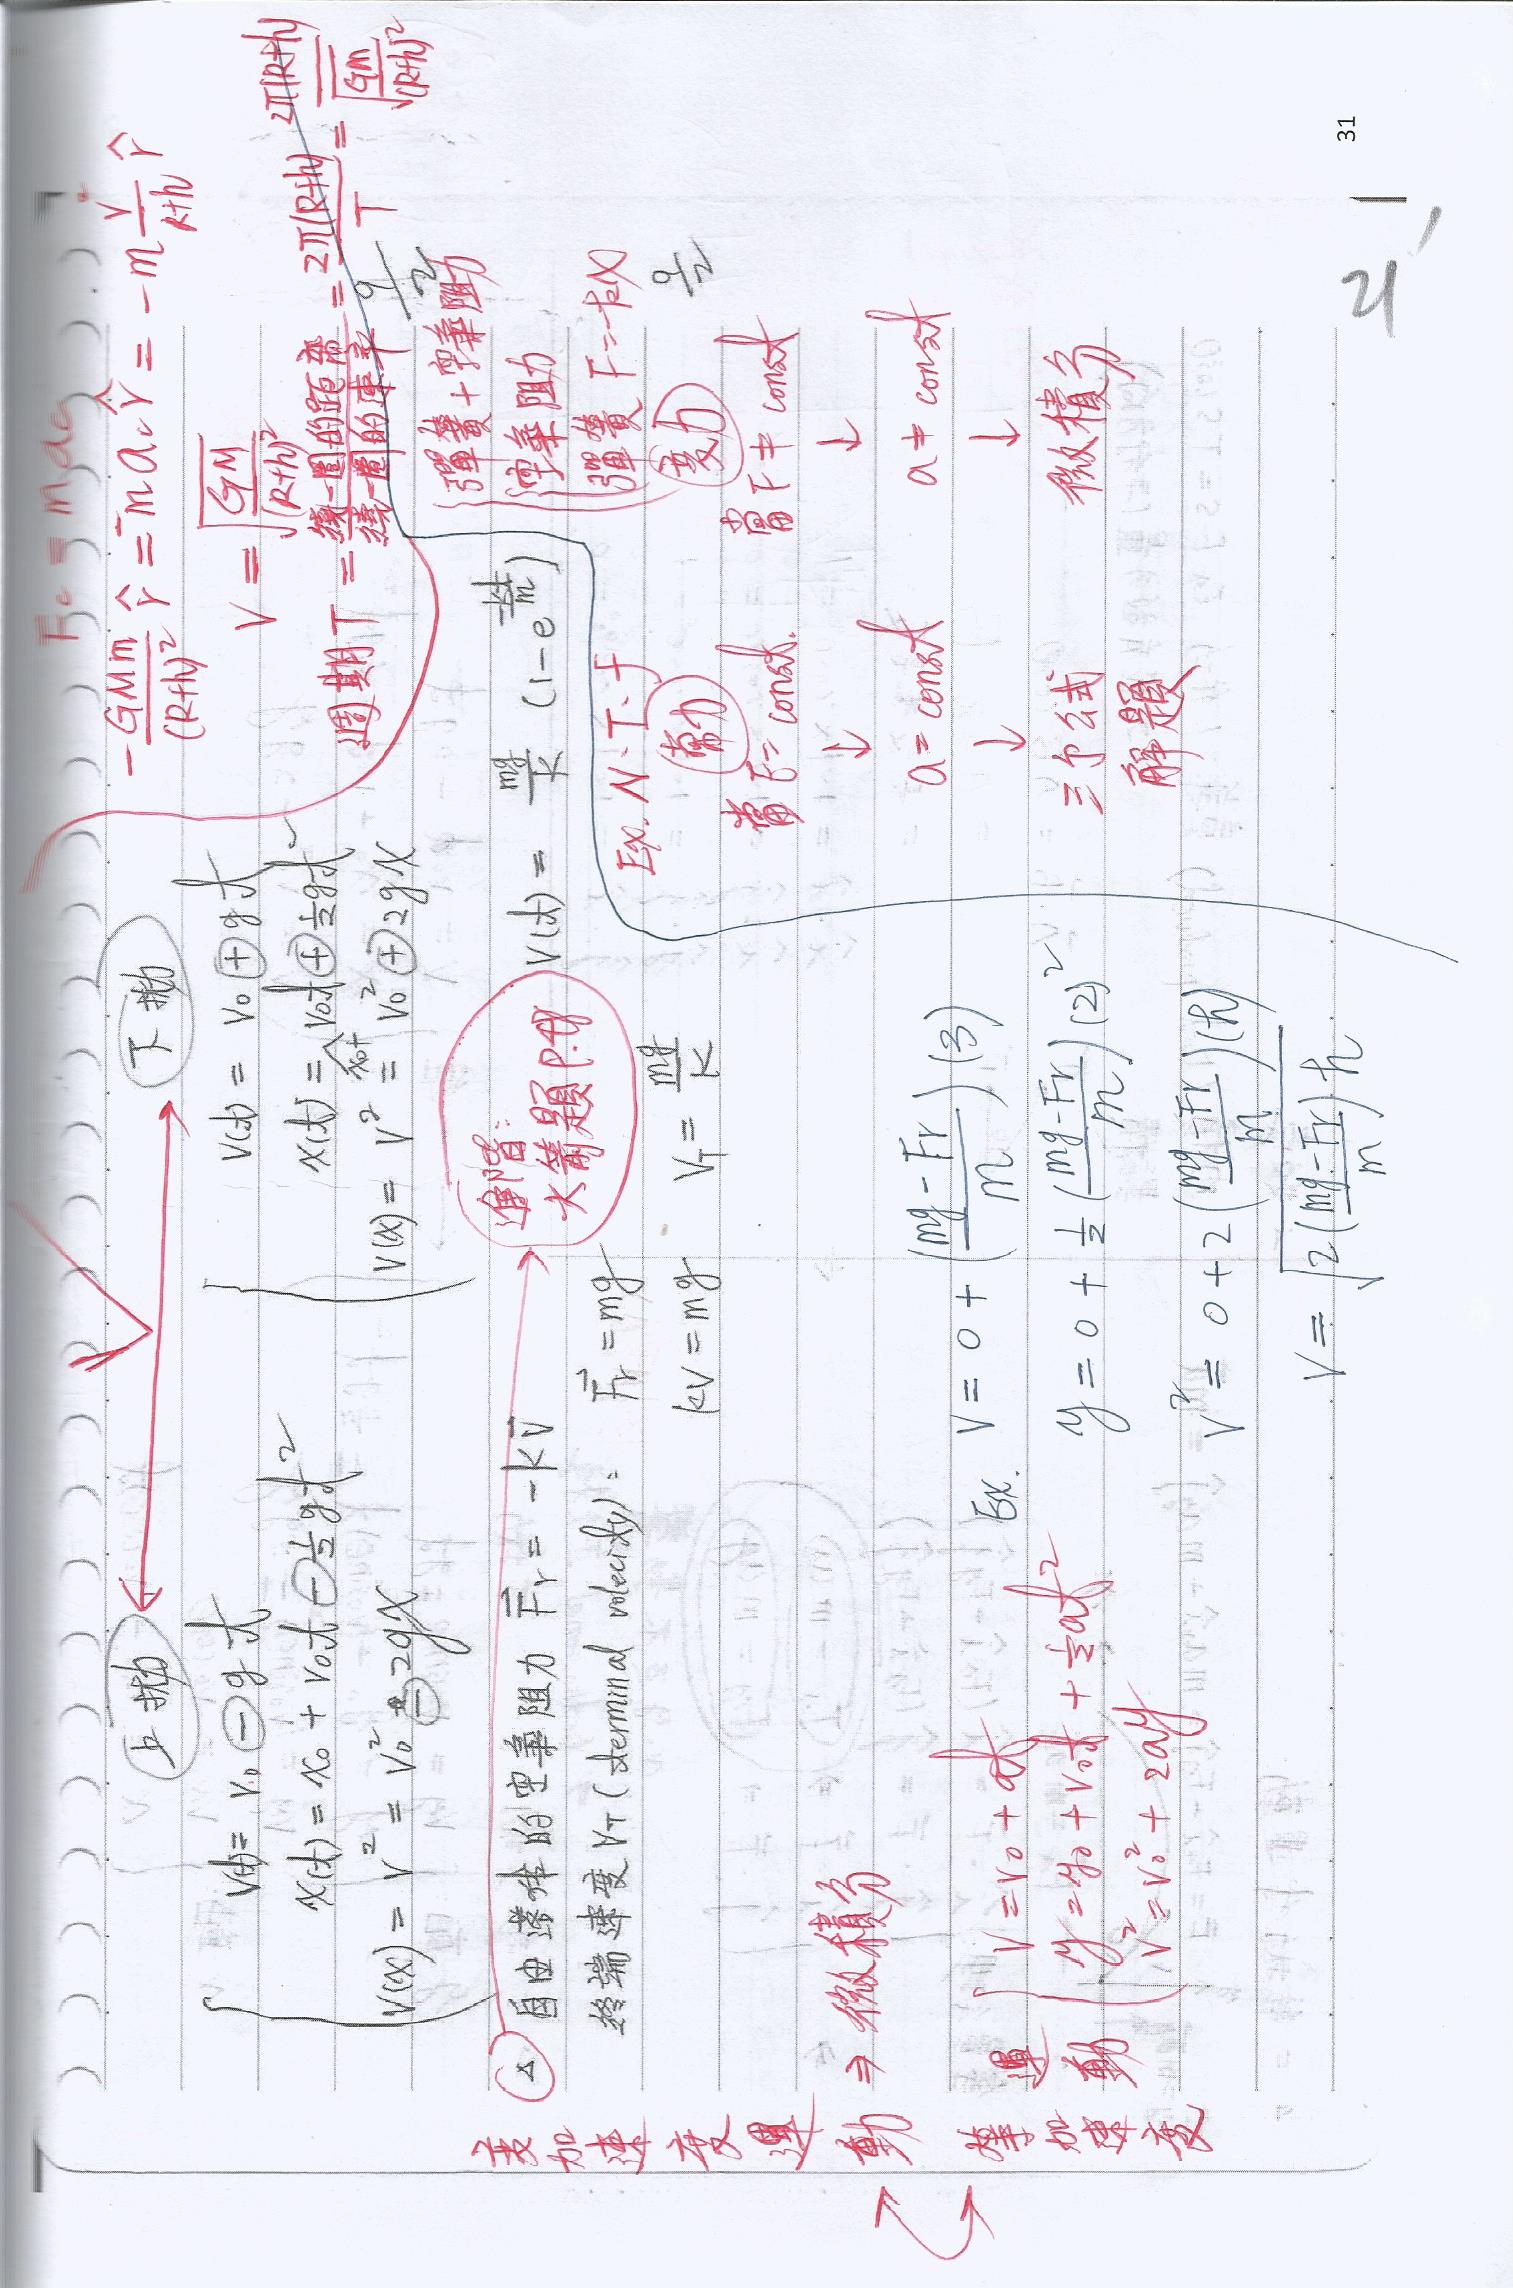 Fc = mac
-GMm/(R+h)² r̂ = -m ac r̂ = -m v/(R+h) r̂
V = √(GM/(R+h)²)
週期 T = 繞一圈的距離/繞一圈的速率 = 2π(R+h)/T = 2π(R+h)/√(GM/(R+h)²)
上拋
V(t) = V₀ - gt
x(t) = x₀ + v₀t - ½gt²
V(x) = V² = V₀² - 2gx
下拋
V(t) = V₀ + gt
x(t) = x₀ + v₀t + ½gt²
V(x) = V² = V₀² + 2gx
自由落体的空氣阻力 Fr = -kV
終端速度 VT (terminal velocity):
Fr = mg
kV = mg
VT = mg/K
V(t) = mg/K (1 - e^(-kt/m))
大簡題 P.
彈簧 + 空氣阻力
空氣阻力
彈簧 F = -kx
Ex. N. T. f
常力
當 F = const.
↓
a = const
↓
三个公式
解題
变力
當 F ≠ const
↓
a ≠ const
↓
微積分
变加速度運動 ⇒ 微積分
等加速度運動
V = V₀ + at
y = y₀ + v₀t + ½at²
V² = V₀² + 2ay
Ex.
V = 0 + (mg - Fr/m)(3)
y = 0 + ½(mg - Fr/m)(2)²
V² = 0 + 2(mg - Fr/m)(h)
V = √2(mg - Fr/m)h
31
21